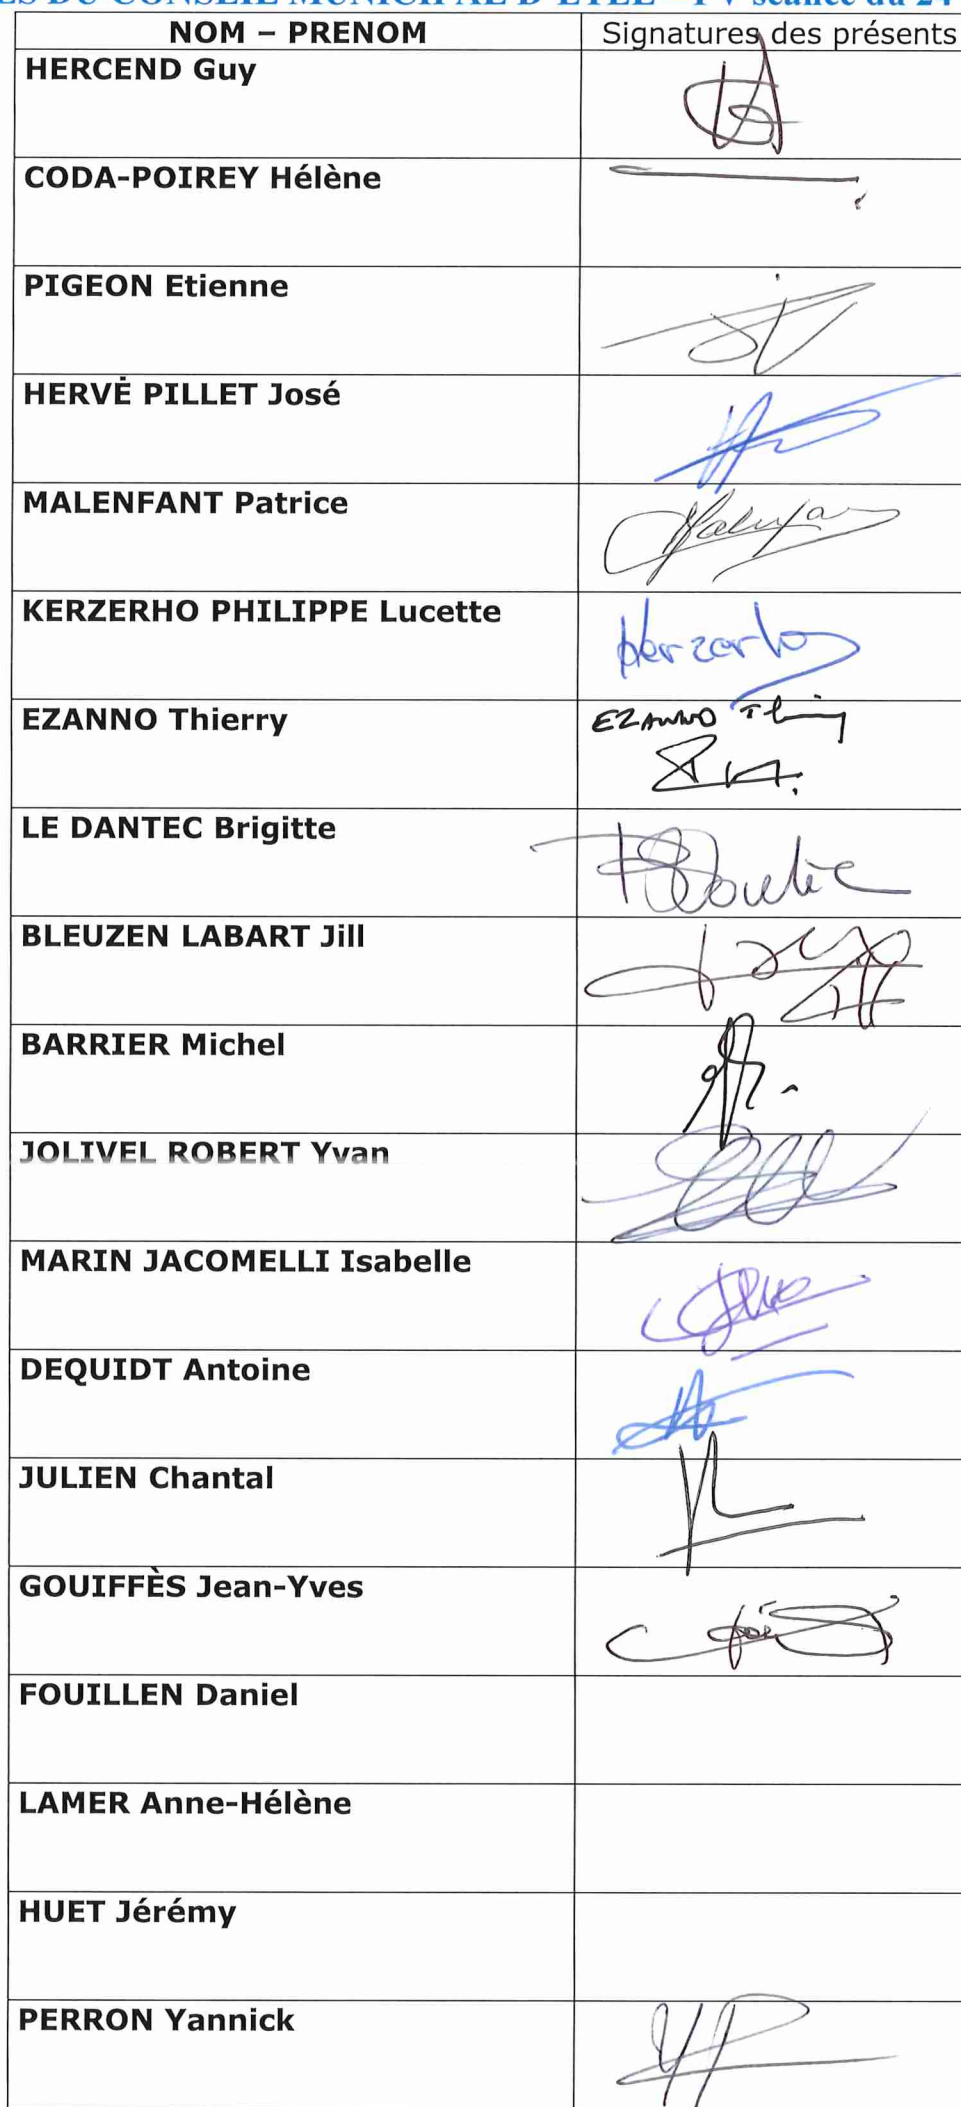 ES DU CONSEIL MUNICIPAL D'ETEL – PV séance du 24
NOM – PRENOM Signatures des présents
HERCEND Guy
CODA-POIREY Hélène
PIGEON Etienne
HERVÉ PILLET José
MALENFANT Patrice
KERZERHO PHILIPPE Lucette Kerzerho
EZANNO Thierry EZANNO Thierry
LE DANTEC Brigitte
BLEUZEN LABART Jill
BARRIER Michel
JOLIVEL ROBERT Yvan
MARIN JACOMELLI Isabelle
DEQUIDT Antoine
JULIEN Chantal
GOUIFFÈS Jean-Yves
FOUILLEN Daniel
LAMER Anne-Hélène
HUET Jérémy
PERRON Yannick